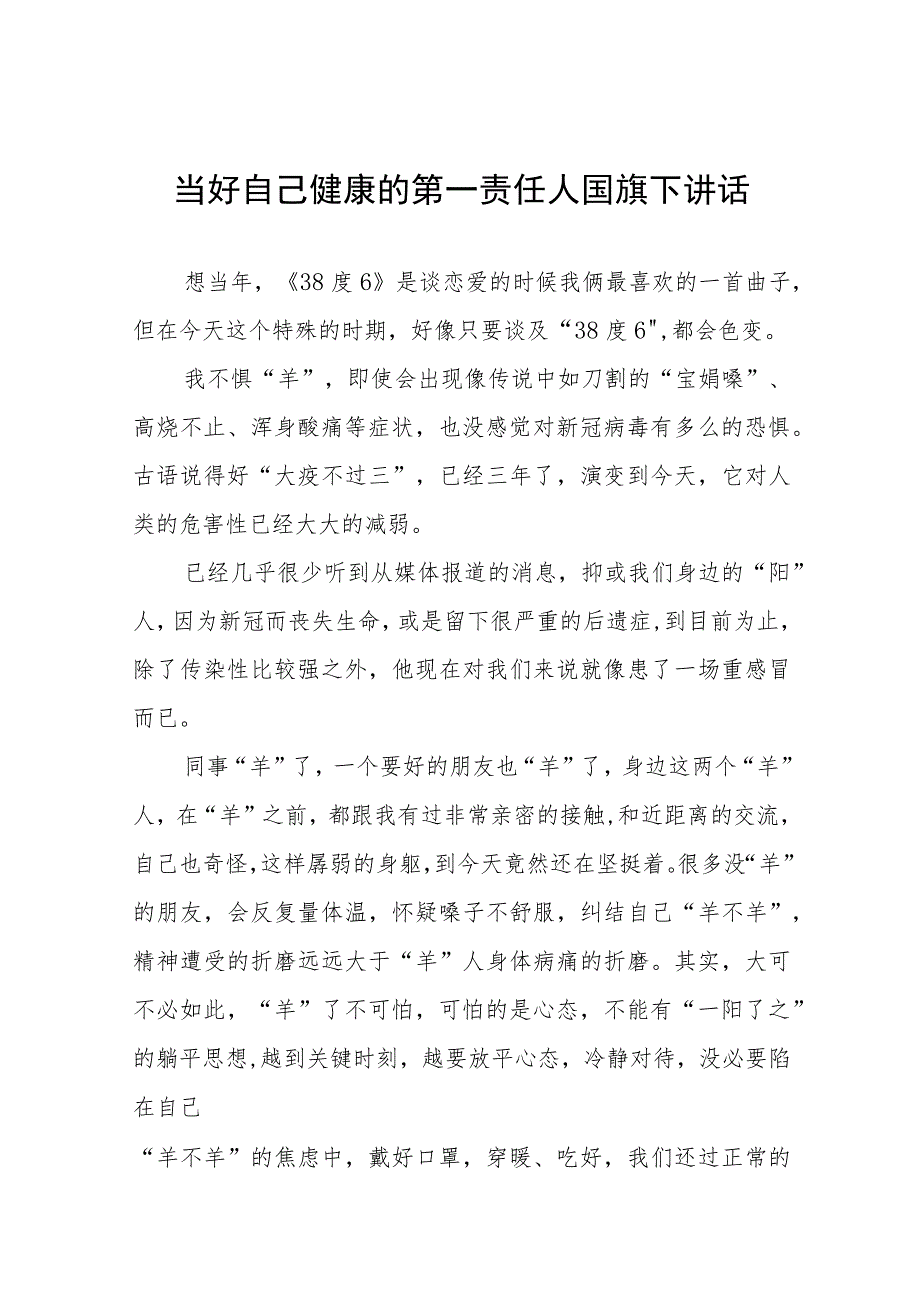 当好自己健康的第一责任人国旗下讲话
想当年，《38 度 6》是谈恋爱的时候我俩最喜欢的一首曲子，
但在今天这个特殊的时期，好像只要谈及“38 度 6",都会色变。
我不惧“羊”，即使会出现像传说中如刀割的“宝娟嗓”、
高烧不止、浑身酸痛等症状，也没感觉对新冠病毒有多么的恐惧。
古语说得好“大疫不过三”，已经三年了，演变到今天，它对人
类的危害性已经大大的减弱。
已经几乎很少听到从媒体报道的消息，抑或我们身边的“阳”
人，因为新冠而丧失生命，或是留下很严重的后遗症,到目前为止，
除了传染性比较强之外，他现在对我们来说就像患了一场重感冒
而已。
同事“羊”了，一个要好的朋友也“羊”了，身边这两个“羊”
人，在“羊”之前，都跟我有过非常亲密的接触,和近距离的交流，
自己也奇怪,这样孱弱的身躯,到今天竟然还在坚挺着。很多没“羊”
的朋友，会反复量体温，怀疑嗓子不舒服，纠结自己“羊不羊”，
精神遭受的折磨远远大于“羊”人身体病痛的折磨。其实，大可
不必如此，“羊”了不可怕，可怕的是心态，不能有“一阳了之”
的躺平思想,越到关键时刻，越要放平心态，冷静对待，没必要陷
在自己
“羊不羊”的焦虑中，戴好口罩，穿暖、吃好，我们还过正常的